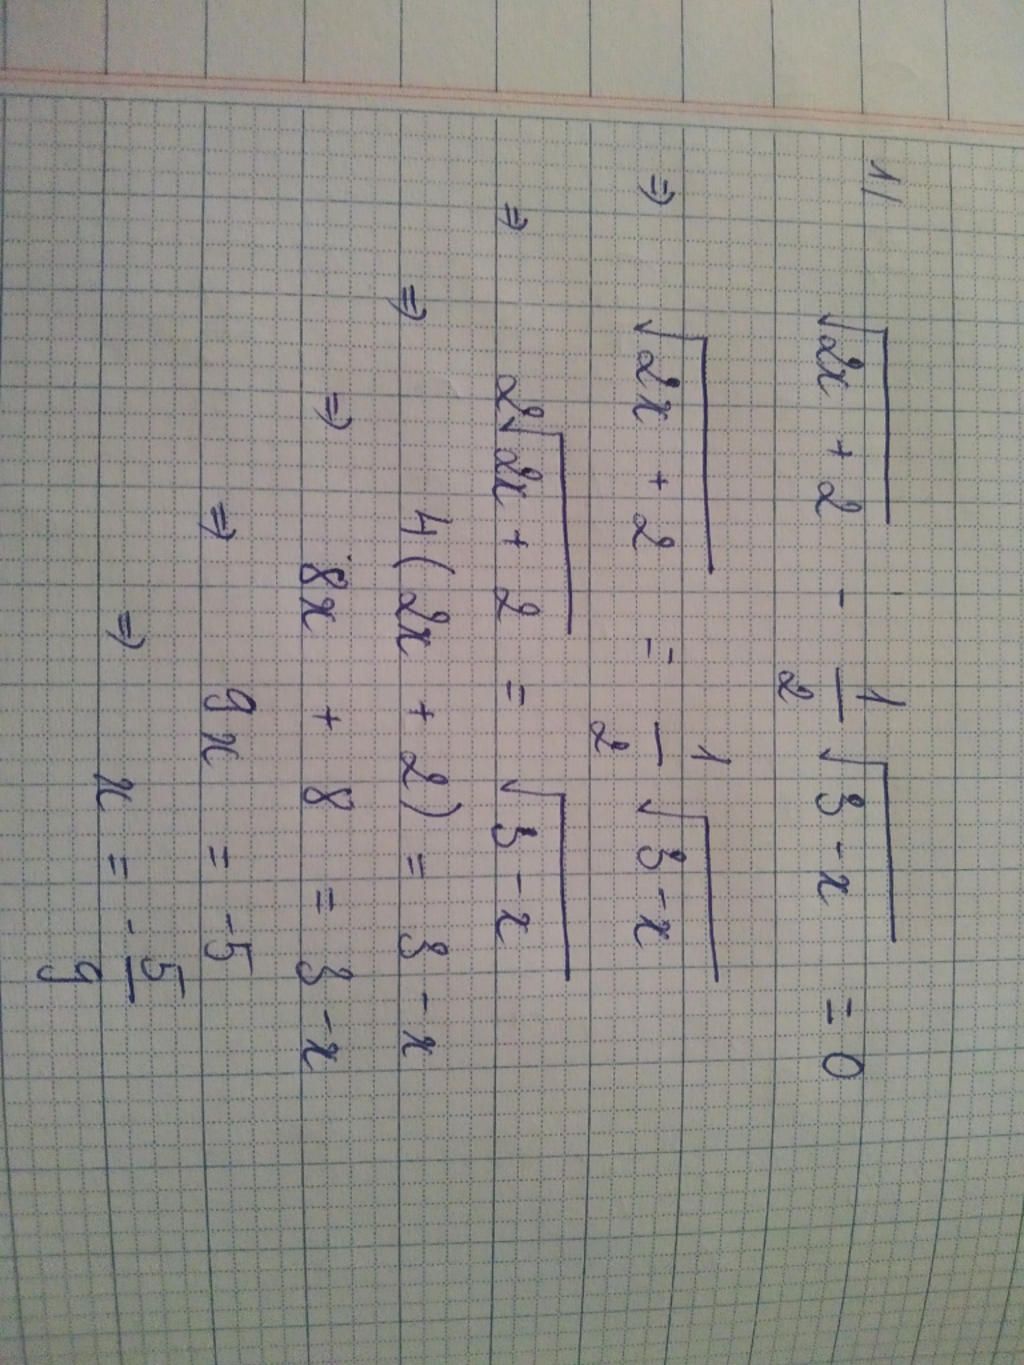 1/ √(2x + 2) - 1/2 √(3 - x) = 0
⇒ √(2x + 2) = 1/2 √(3 - x)
⇒ 2√(2x + 2) = √(3 - x)
⇒ 4(2x + 2) = 3 - x
⇒ 8x + 8 = 3 - x
⇒ 9x = -5
⇒ x = - 5/9